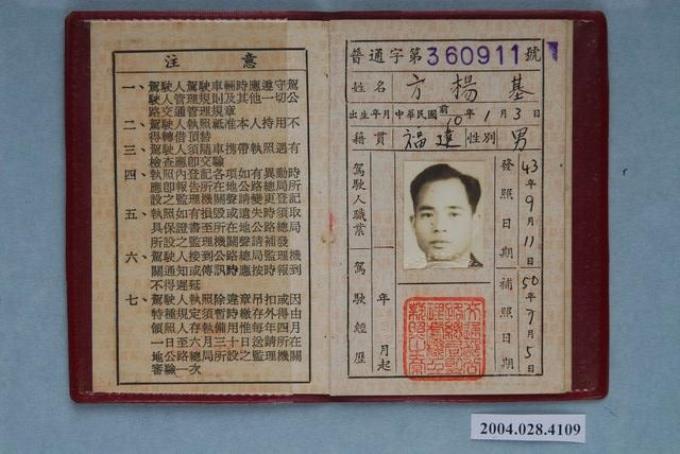 注意
一、駕駛人駕駛車輛時應遵守駕
駛人管理規則及其他一切公
路交通管理規章
二、駕駛人執照祗准本人持用不
得轉借頂替
三、駕駛人須隨車攜帶執照遇有
檢查應卽交驗
四、執照內登記各項如有異動時
應卽報告所在地公路總局所
設之監理機關聲請變更登記
五、執照如有損毀或遺失時須取
具保證書至所在地公路總局
所設之監理機關聲請補發
六、駕駛人接到公路總局監理機
關通知或傳訊時應按時報到
不得遲延
七、駕駛人執照除違章吊扣或因
特種規定須暫時繳存外得由
領照人存執備用惟每年四月
一日至六月三十日送請所在
地公路總局所設之監理機關
審驗一次
普通字第360911號
姓名 方楊基
出生年月 中華民國前10年1月3日
籍貫 福建 性別 男
發照日期 43年9月11日
補照日期 50年7月5日
駕駛人職業
駕駛經歷 年 月起
2004.028.4109